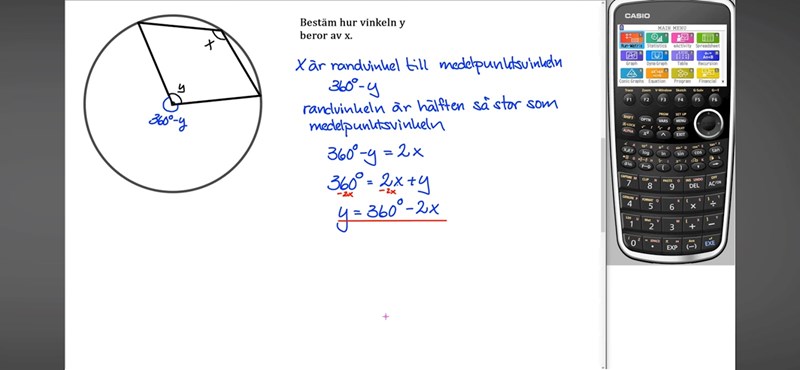 Bestäm hur vinkeln y
beror av x.
x
y
360°-y
X är randvinkel till medelpunktsvinkeln
360°-y
randvinkeln är hälften så stor som
medelpunktsvinkeln
360°-y = 2x
360° = 2x + y
-2x -2x
y = 360° - 2x
CASIO
MAIN MENU
Run-Matrix Statistics eActivity Spreadsheet
Graph Dyna Graph Table Recursion
Conic Graphs Equation Program Financial
F1 F2 F3 F4 F5 F6
SHIFT OPTN VARS MENU
ALPHA EXIT
7 8 9 DEL AC/ON
4 5 6 × ÷
1 2 3 + −
0 . EXP (−) EXE